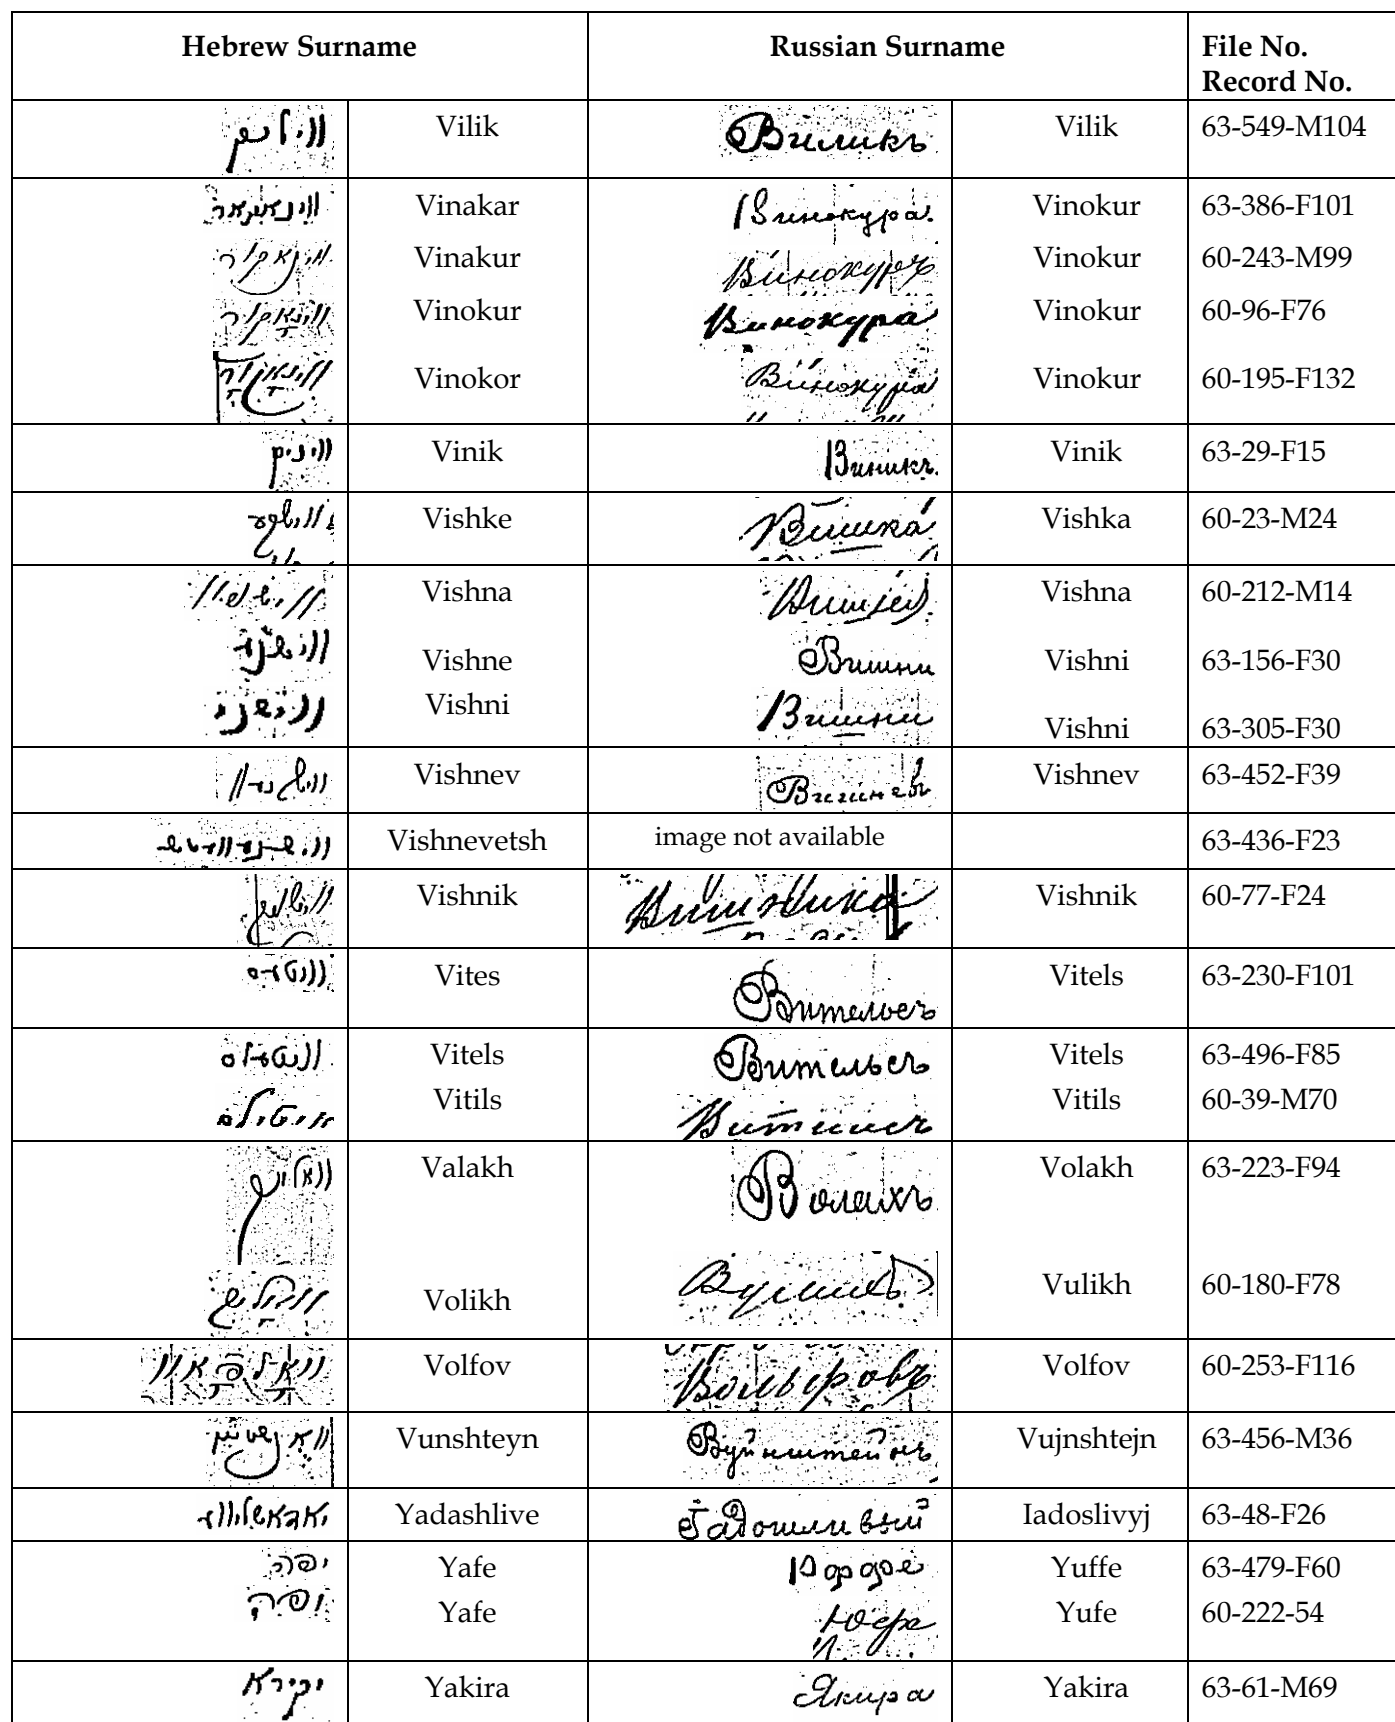 Hebrew Surname Russian Surname File No. Record No.
וויליק Vilik Виликъ Vilik 63-549-M104
ווינאקאר Vinakar Винокура Vinokur 63-386-F101
ווינאקור Vinakur Винокуръ Vinokur 60-243-M99
ווינאָקור Vinokur Винокура Vinokur 60-96-F76
ווינאָקאָר Vinokor Винокура Vinokur 60-195-F132
וויניק Vinik Виникъ Vinik 63-29-F15
ווישקע Vishke Вишка Vishka 60-23-M24
Vishna Vishna 60-212-M14
ווישנע Vishne Вишни Vishni 63-156-F30
ווישני Vishni Вишни Vishni 63-305-F30
ווישנעוו Vishnev Вишневъ Vishnev 63-452-F39
ווישנעוועטש Vishnevetsh image not available 63-436-F23
ווישניק Vishnik Вишника Vishnik 60-77-F24
וויטעס Vites Вительсъ Vitels 63-230-F101
וויטעלס Vitels Вительсъ Vitels 63-496-F85
וויטילס Vitils Витилсъ Vitils 60-39-M70
Valakh Волахъ Volakh 63-223-F94
Volikh Вулихъ Vulikh 60-180-F78
וואָלפאָוו Volfov Вольфовъ Volfov 60-253-F116
Vunshteyn Вуйнштейнъ Vujnshtejn 63-456-M36
יאדאשליווע Yadashlive Ядошливый Iadoslivyj 63-48-F26
יפה Yafe Юффе Yuffe 63-479-F60
יפה Yafe Юфе Yufe 60-222-54
יקירא Yakira Якира Yakira 63-61-M69